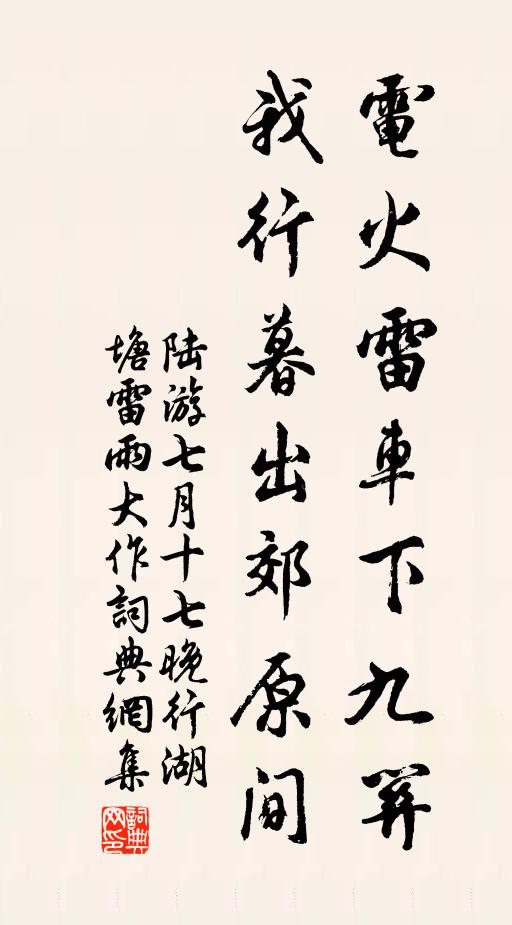 電火雷車下九關
我行暮出郊原間
陸游七月十七晚行湖
塘雷雨大作詞典網集
詞典
网印